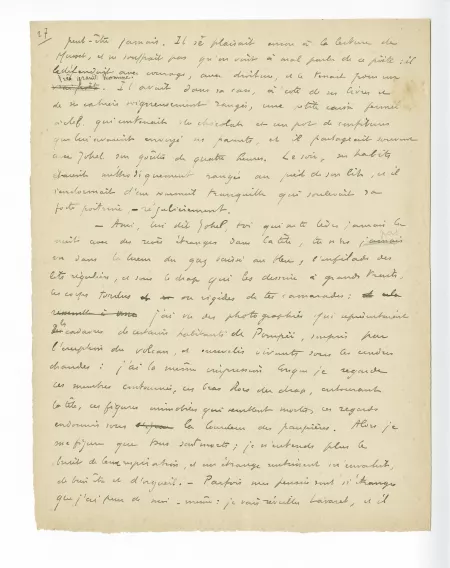 27
peut-être jamais. Il se plaisait encore à la lecture de
Musset, et ne souffrait pas qu'on vînt à mal parler de ce poète : il
le défendait avec courage, avec droiture, et le tenait pour un
très grand homme.
vrai poète. Il avait dans sa case, à côté de ses livres et
de ses cahiers soigneusement rangés, une petite caisse fermée
à clef, qui contenait du chocolat et un pot de confitures
que lui avaient envoyé ses parents, et il partageait souvent
avec Johel son goûter de quatre heures. Le soir, ses habits
étaient méthodiquement rangés au pied de son lit, et il
s'endormait d'un sommeil tranquille qui soulevait sa
forte poitrine, régulièrement.
– Ami, lui dit Johel, toi qui ne te lèves jamais la
nuit avec des rêves étranges dans la tête, tu n'as jamais
pas
vu dans la lueur du gaz baissé au bleu, l'enfilade des
lits réguliers, et sous le drap qui les dessine à grands traits,
les corps tordus ou rigides de tes camarades :
j'ai vu des photographies qui représentaient
les cadavres de certains habitants de Pompéi, surpris par
l'éruption du volcan, et ensevelis vivants sous les cendres
chaudes : j'ai la même impression lorsque je regarde
ces membres contournés, ces bras hors du drap, entourant
la tête, ces figures immobiles qui semblent mortes, ces regards
endormis sous la lourdeur des paupières. Alors je
me figure que tous sont morts ; je n'entends plus le
bruit de leur respiration, et un étrange sentiment m'envahit,
de bien-être et d'orgueil. – Parfois mes pensées sont si étranges
que j'ai peur de moi-même : je vais réveiller Lavaret, et il